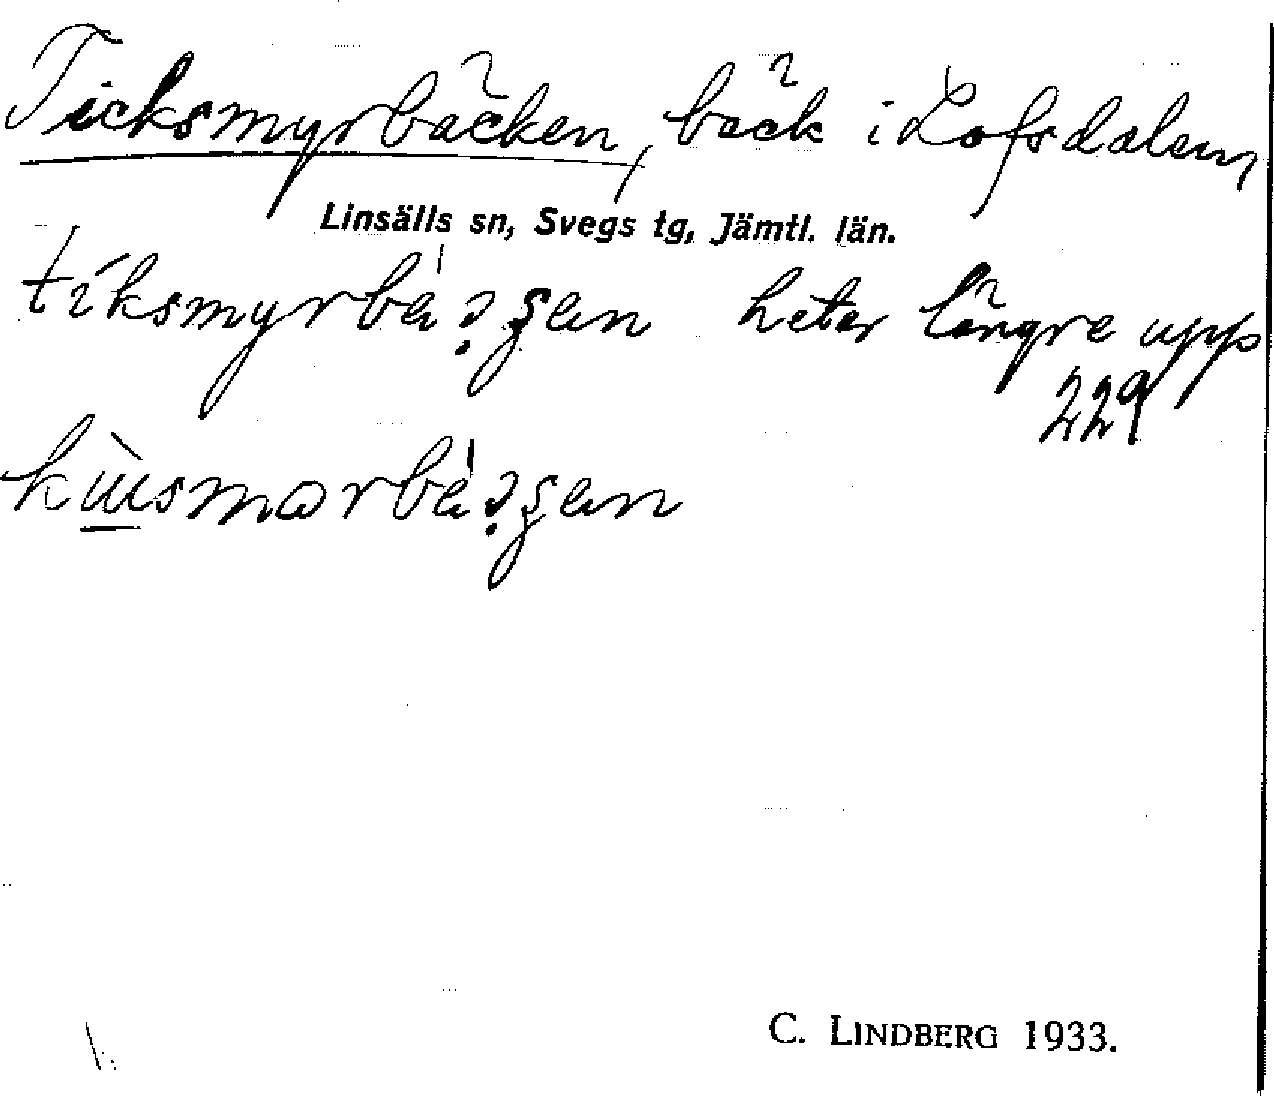 Ticksmyrbäcken, bäck i Lofsdalen,
Linsälls sn, Svegs tg, Jämtl. län.
heter längre upp
229
C. LINDBERG 1933.